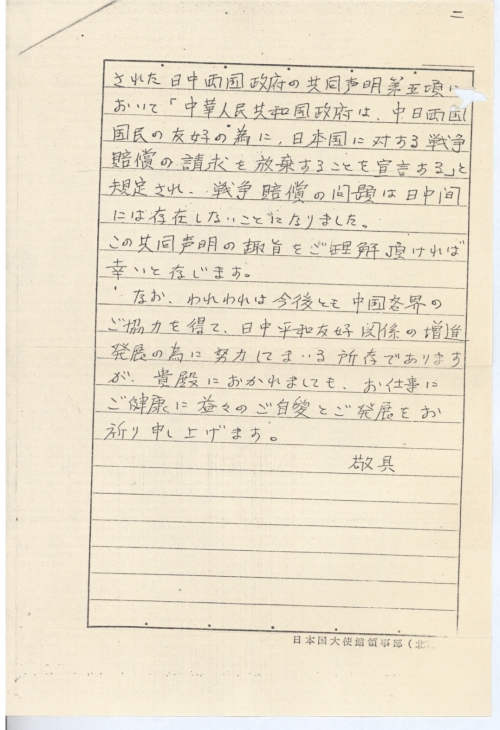 二
された日中両国政府の共同声明第五項に
おいて「中華人民共和国政府は、中日両国
国民の友好の為に、日本国に対する戦争
賠償の請求を放棄することを宣言する」と
規定され、戦争賠償の問題は日中間
には存在しないことになりました。
この共同声明の趣旨をご理解頂ければ
幸いと存じます。
なお、われわれは今後とも中国各界の
ご協力を得て、日中平和友好関係の増進
発展の為に努力してまいる所存であります
が、貴殿におかれましても、お仕事に
ご健康に益々のご自愛とご発展をお
祈り申し上げます。
敬具
日本国大使館領事部（北